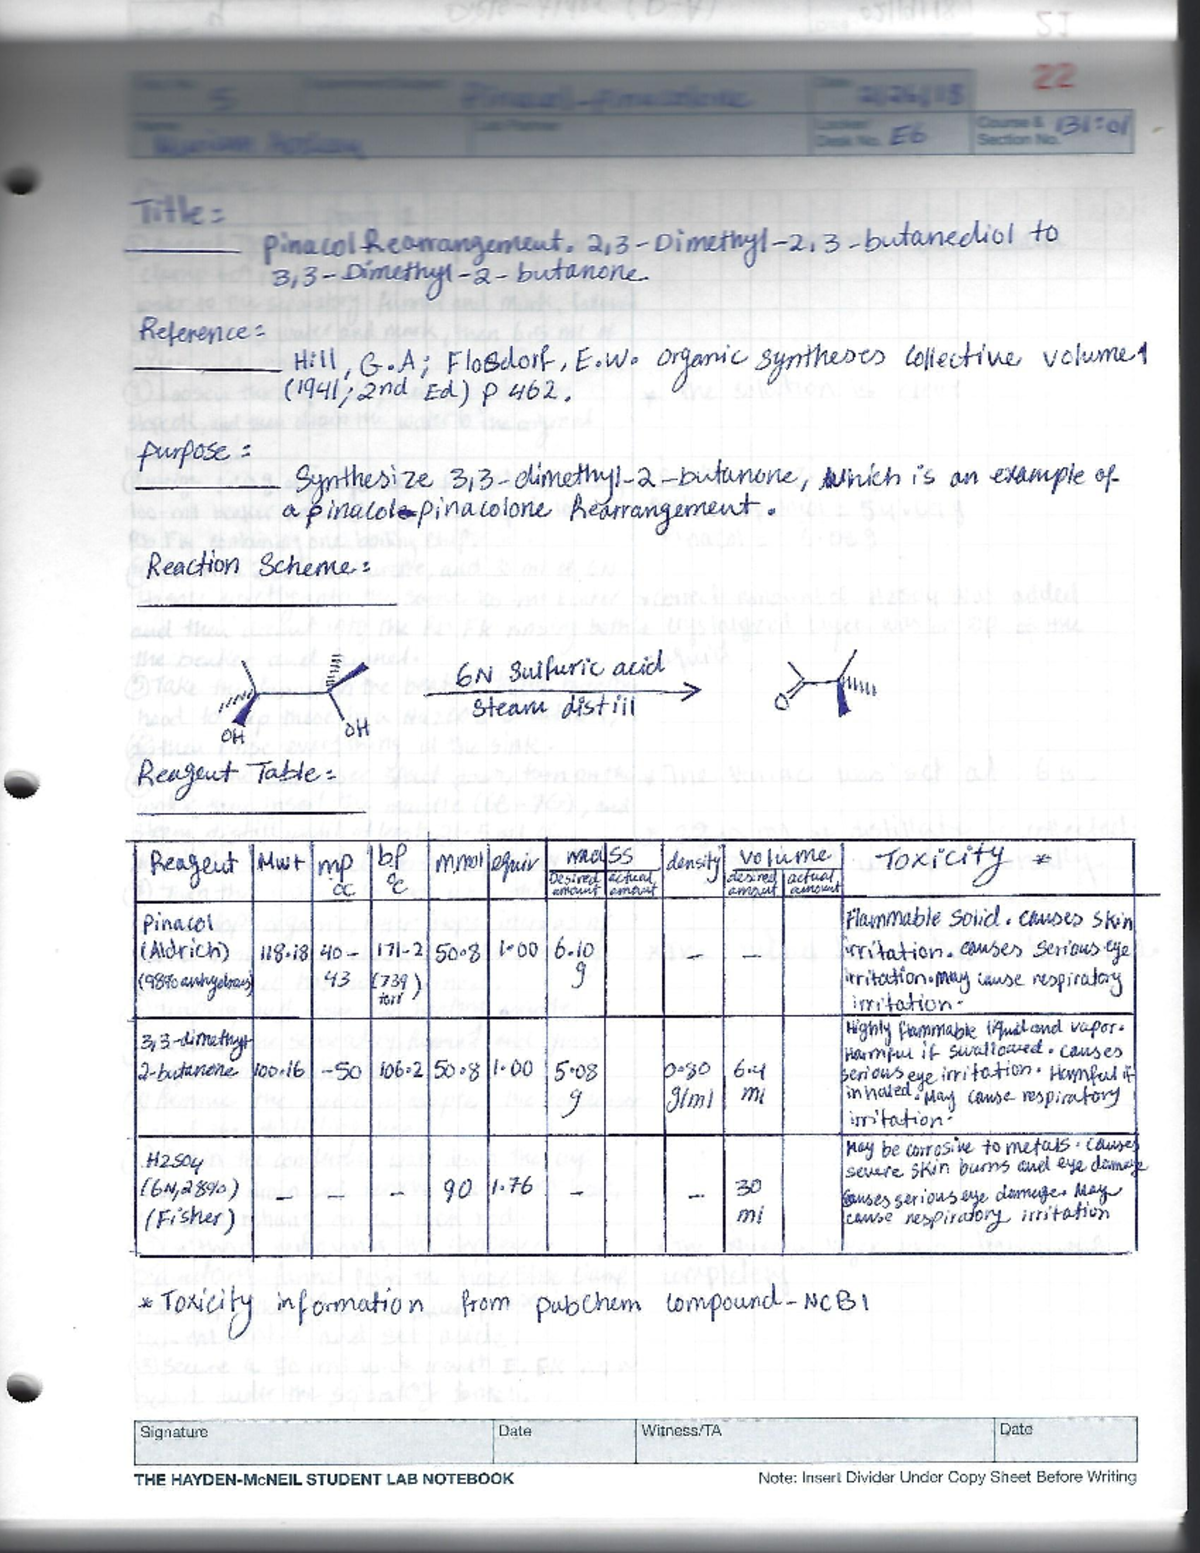 21
22
5
Pinacol-pinacolone
2/26/18
Desk No. E6
Course &
Section No. 131:01
Title:
Pinacol Rearrangement. 2,3-Dimethyl-2,3-butanediol to
3,3-Dimethyl-2-butanone.
Reference:
Hill, G.A; Flosdorf, E.W. Organic Syntheses Collective Volume 1
(1941; 2nd Ed) P 462.
Purpose:
Synthesize 3,3-dimethyl-2-butanone, which is an example of
a pinacol-pinacolone Rearrangement.
Reaction Scheme:
6N Sulfuric acid
Steam distill
OH
OH
O
Reagent Table:
Reagent Mwt mp °C bp °C mmol equiv mass desired amount actual amount density volume desired amount actual amount Toxicity *
Pinacol (Aldrich) (98% anhydrous) 118.18 40-43 171-2 (739 torr) 50.8 1.00 6.10 g – –
Flammable solid. causes skin
irritation. causes serious eye
irritation. May cause respiratory
irritation.
3,3-dimethyl-2-butanone 100.16 -50 106.2 50.8 1.00 5.08 g 0.80 g/ml 6.4 ml
Highly flammable liquid and vapor.
Harmful if swallowed. causes
serious eye irritation. Harmful if
inhaled. May cause respiratory
irritation.
H2SO4 (6N, 28%) (Fisher) – – – 90 1.76 – – 30 ml
May be corrosive to metals. causes
severe skin burns and eye damage
causes serious eye damage. May
cause respiratory irritation
* Toxicity information from pubchem compound-NCBI
Signature Date Witness/TA Date
THE HAYDEN-McNEIL STUDENT LAB NOTEBOOK Note: Insert Divider Under Copy Sheet Before Writing